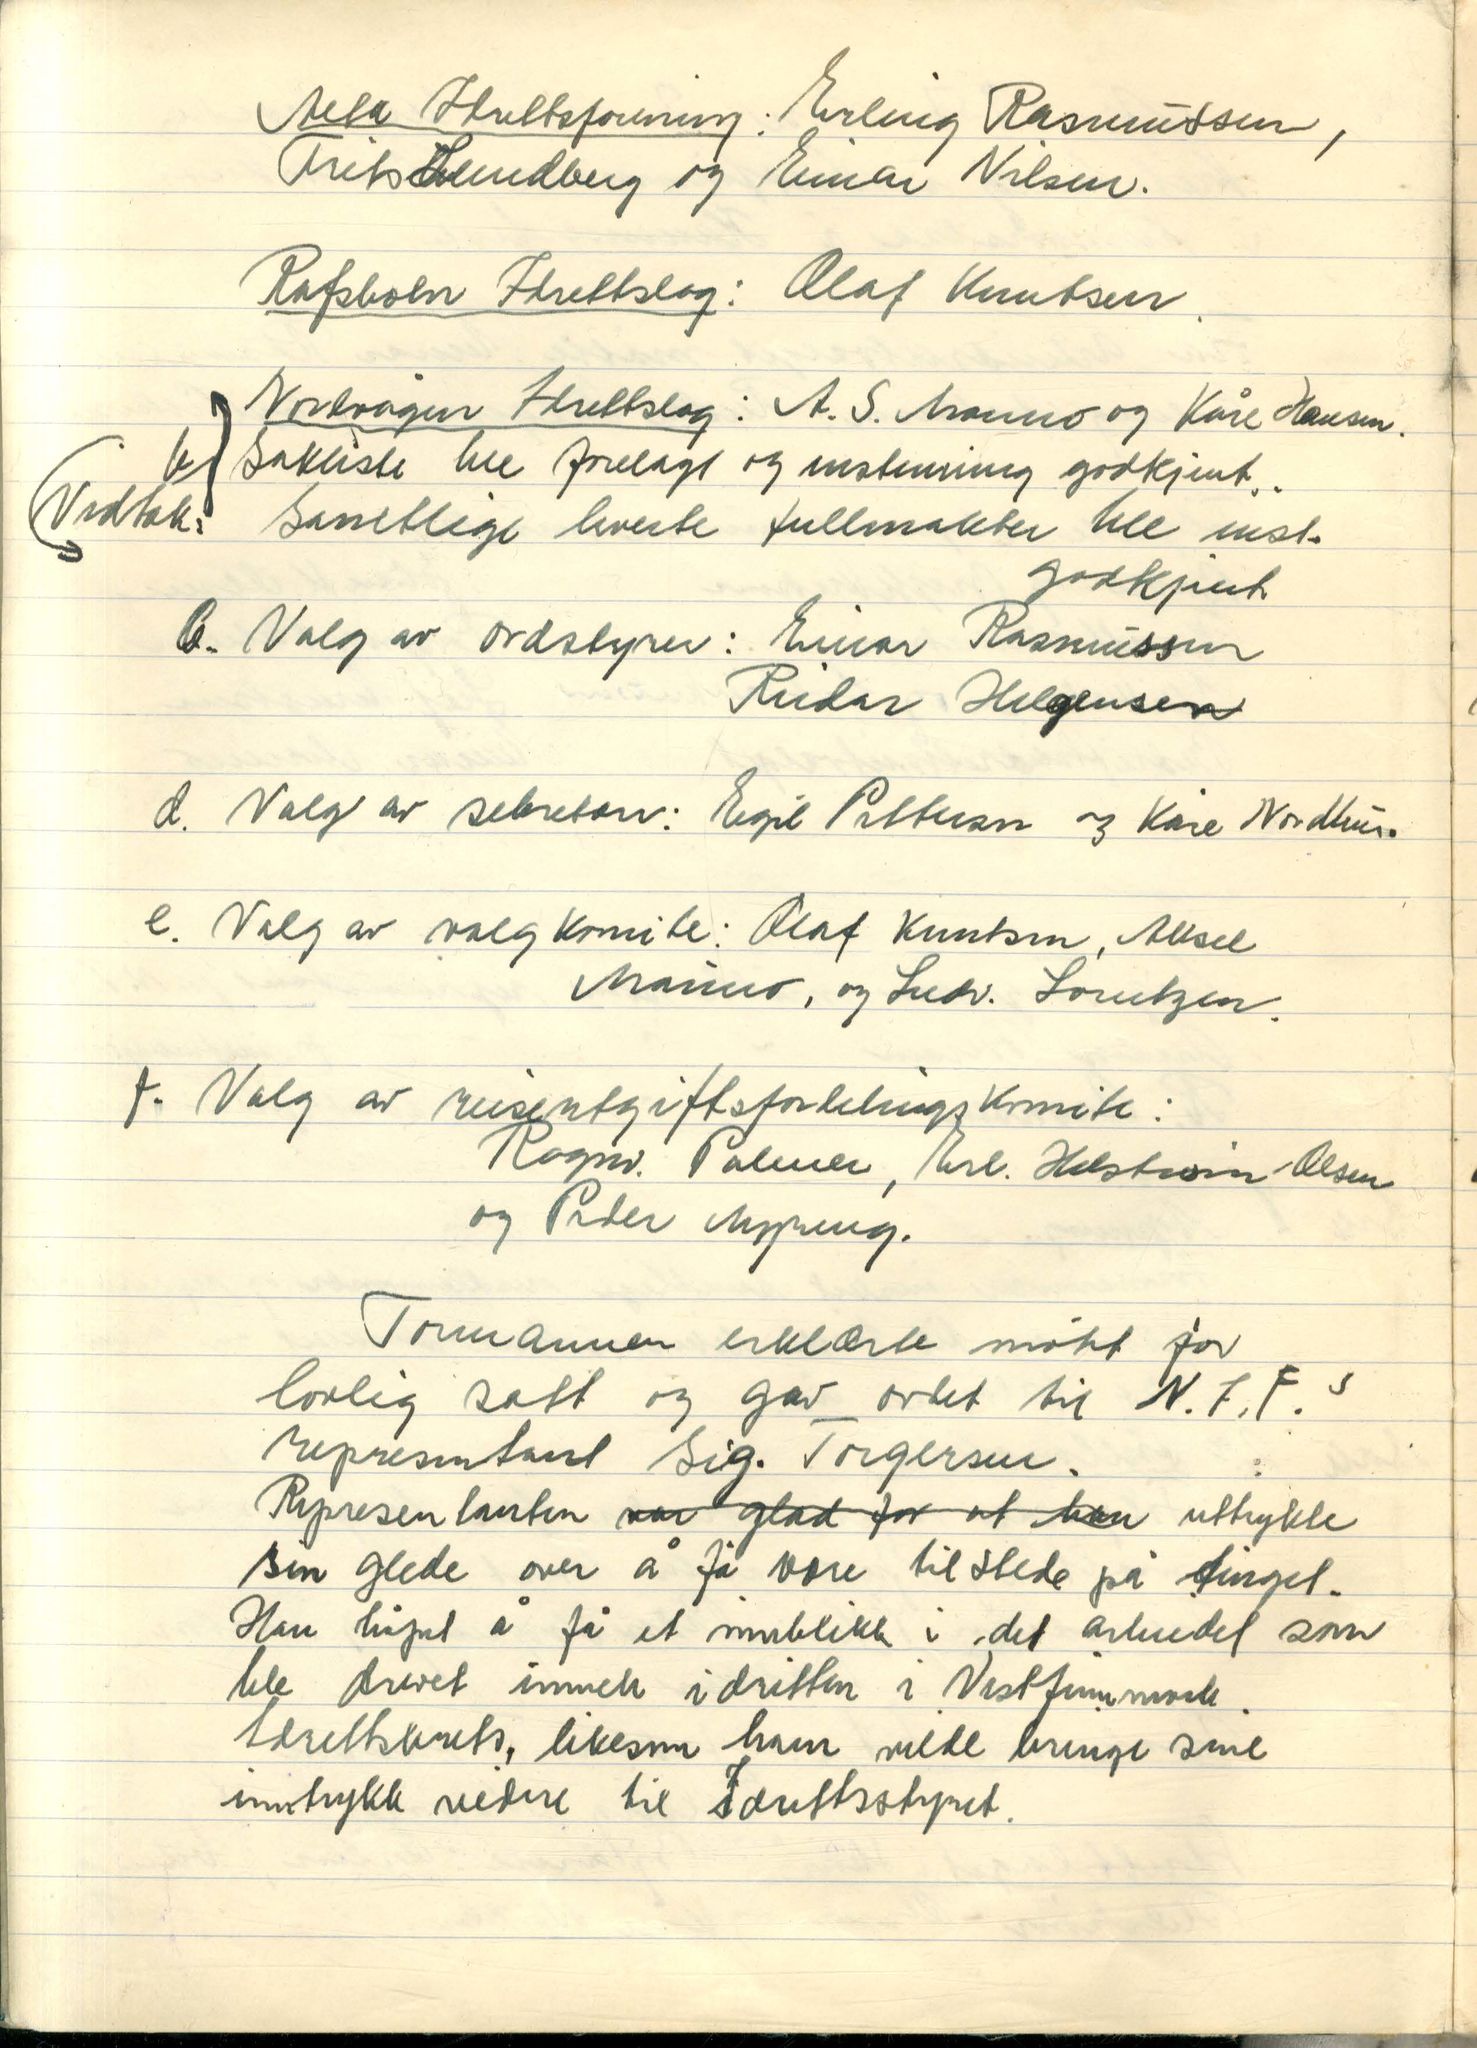 Alta Idrettsforening: Erling Rasmussen,
Frits Lundberg og Einar Nilsen.
Rafsbotn Idrettslag: Olaf Knutsen.
Nordvågen Idrettslag: A. S. Manno og Kåre Hansen.
b/ Sakliste ble forelagt og enstemmig godkjent.
Vedtak: Samtlige leverte fullmakter ble enst.
godkjent
c. Valg av ordstyrer: Einar Rasmussen
Reidar Helgensen
d. Valg av sekretær: Egil Pettersen og Kåre Nordhus.
e. Valg av valgkomite: Olaf Knutsen, Aksel
Manno, og Ludv. Lorentzen.
f. Valg av reiseutgiftsfordelingskomite:
Ragnv. Palmer, Erl. Olsen
og Peder
Formannen erklærte møtet for
lovlig satt og gav ordet til N.I.F.s
representant Sig. Torgersen.
Representanten var glad for at han uttrykte
sin glede over å få være tilstede på tinget.
Han håpet å få et innblikk i det arbeidet som
ble drevet innen idretten i Vestfinnmark
Idrettskrets, likesom han vilde bringe sine
inntrykk videre til Idrettsstyret.